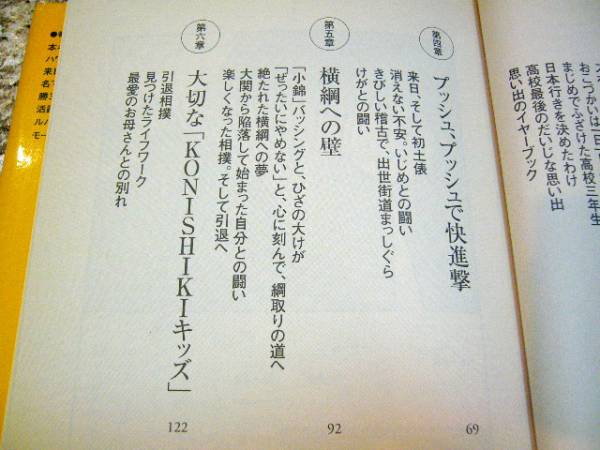 おこづかいは一日一
まじめでふざけた高校三年生
日本行きを決めたわけ
高校最後のだいじな思い出
思い出のイヤーブック
第四章
プッシュ、プッシュで快進撃
69
来日、そして初土俵
消えない不安。いじめとの闘い
きびしい稽古で、出世街道まっしぐら
けがとの闘い
第五章
横綱への壁
92
「小錦」バッシングと、ひざの大けが
「ぜったいにやめない」と、心に刻んで、綱取りの道へ
絶たれた横綱への夢
大関から陥落して始まった自分との闘い
楽しくなった相撲。そして引退へ
第六章
大切な「KONISHIKIキッズ」
122
引退相撲
見つけたライフワーク
最愛のお母さんとの別れ